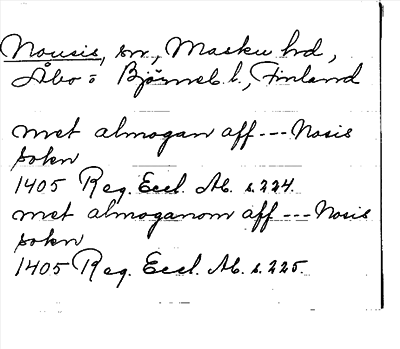 Nousis, sn, Masku hd,
Åbo o Björneb. l., Finland
met almogan aff --- Nosis
sokn
1405 Reg. Eccl. Ab. s. 224.
met almoganom aff --- Nosis
sokn
1405 Reg. Eccl. Ab. s. 225.